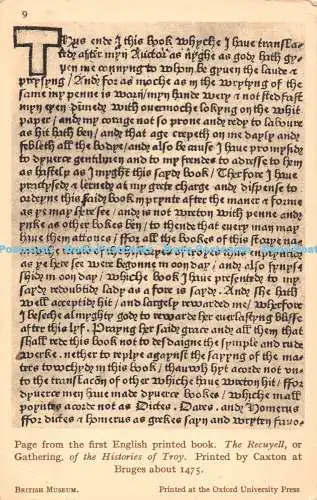 9
Thus ende I this book whyche I have transla-
ted after myn Auctor as nyghe as god hath gy-
ven me connyng to whom be gyven the laude &
preysyng / And for as moche as in the wrytyng of the
same my penne is worn / myn hande wery & not stedfast
myn eyen dimed with overmoche lokyng on the whit
paper / and my corage not so prone and redy to laboure
as hit hath ben / and that age crepeth on me dayly and
febleth all the bodye / and also be cause I have promysid
to dyverce gentilmen and to my frendes to adresse to hem
as hastely as I myght this sayd book / Therfore I have
practysed & lerned at my grete charge and dispense to
ordeyne this said book in prynte after the maner & forme
as ye may here see / and is not wreton with penne and
ynke as other bokes ben / to thende that every man may
have them attones / ffor all the bookes of this storye na-
med the recule of the historyes of troyes thus enpryntid
as ye here see were begonne in oon day / and also fynys-
shid in oon day / whiche book I have presented to my
sayd redoubtid lady as a fore is sayd. And she hath
well acceptid hit / and largely rewarded me / wherfore
I beseche almyghty god to rewarde her everlastyng blisse
after this lyf. Prayng her said grace and all them that
shall rede this book not to desdaigne the symple and rude
werke. nether to replye agaynst the sayyng of the ma-
tres towchyd in this book / thauwh hyt acorde not vn-
to the translacōn of other whiche have wreton hit / ffor
dyverce men have made dyverce bookes / whiche in all
poyntes acorde not as Dictes. Dares. and Homerus
ffor dictes & homerus as grekes sayn and wryten favo-
Page from the first English printed book. The Recuyell, or
Gathering, of the Histories of Troy. Printed by Caxton at
Bruges about 1475.
BRITISH MUSEUM. Printed at the Oxford University Press